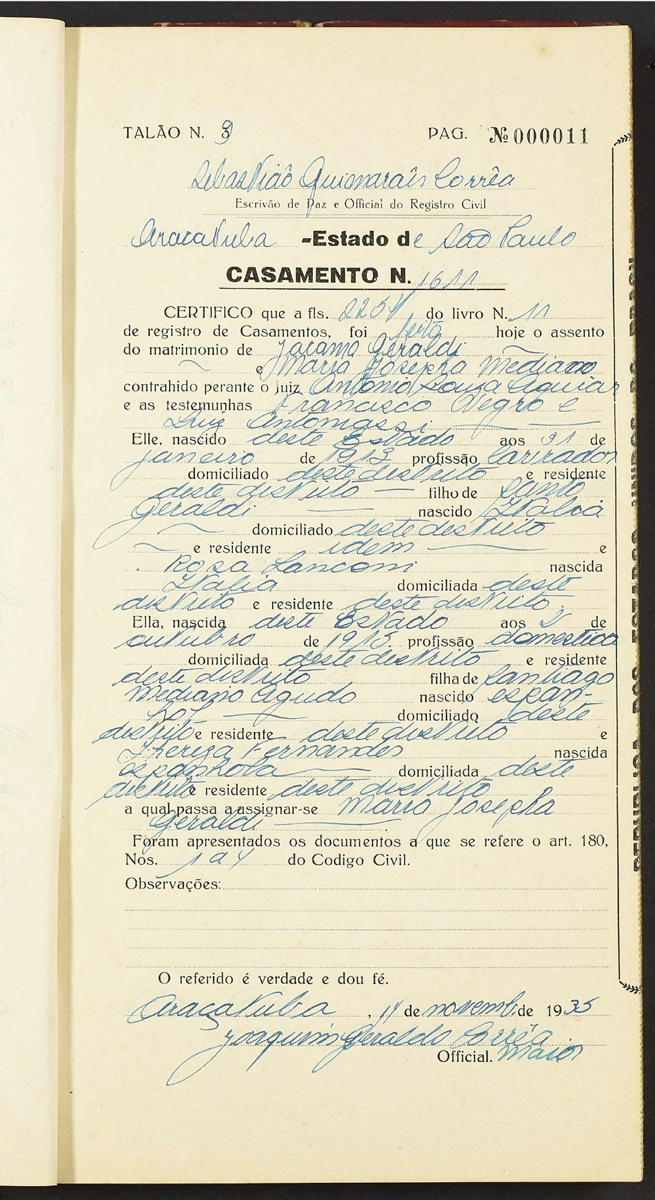 TALÃO N. 9 PAG. Nº 000011
Sebastião Guimarães Corrêa
Escrivão de Paz e Official do Registro Civil
Araçatuba -Estado de São Paulo
CASAMENTO N. 1611
CERTIFICO que a fls. do livro N. 11
de registro de Casamentos, foi feito hoje o assento
do matrimonio de Jacamo Geraldi
e Maria Josepha Mediano
contrahido perante o juiz Antonio Souza Aguiar
e as testemunhas Francisco Negro e
Luiz Antomassi
Elle, nascido deste Estado aos 31 de
janeiro de 1913 profissão lavrador
domiciliado deste distrito e residente
deste distrito filho de Santo
Geraldi nascido Italia
domiciliado deste distrito
e residente idem e
Rosa Lanconi nascida
Italia domiciliada deste
distrito e residente deste distrito
Ella, nascida deste Estado aos de
outubro de 1915 profissão domestica
domiciliada deste distrito e residente
deste distrito filha de Santiago
Mediano Agudo nascido espan-
hol domiciliado deste
distrito e residente deste distrito e
Thereza Fernandes nascida
espanhola domiciliada deste
distrito e residente deste distrito
a qual passa a assignar-se Maria Josepha
Geraldi
Foram apresentados os documentos a que se refere o art. 180,
Nos. 1 a 4 do Codigo Civil.
Observações:
O referido é verdade e dou fé.
Araçatuba, 14 de novemb. de 1935
Joaquim Geraldo Corrêa
Official. Maior
REPUBLICA DOS ESTADOS UNIDOS DO BRASIL